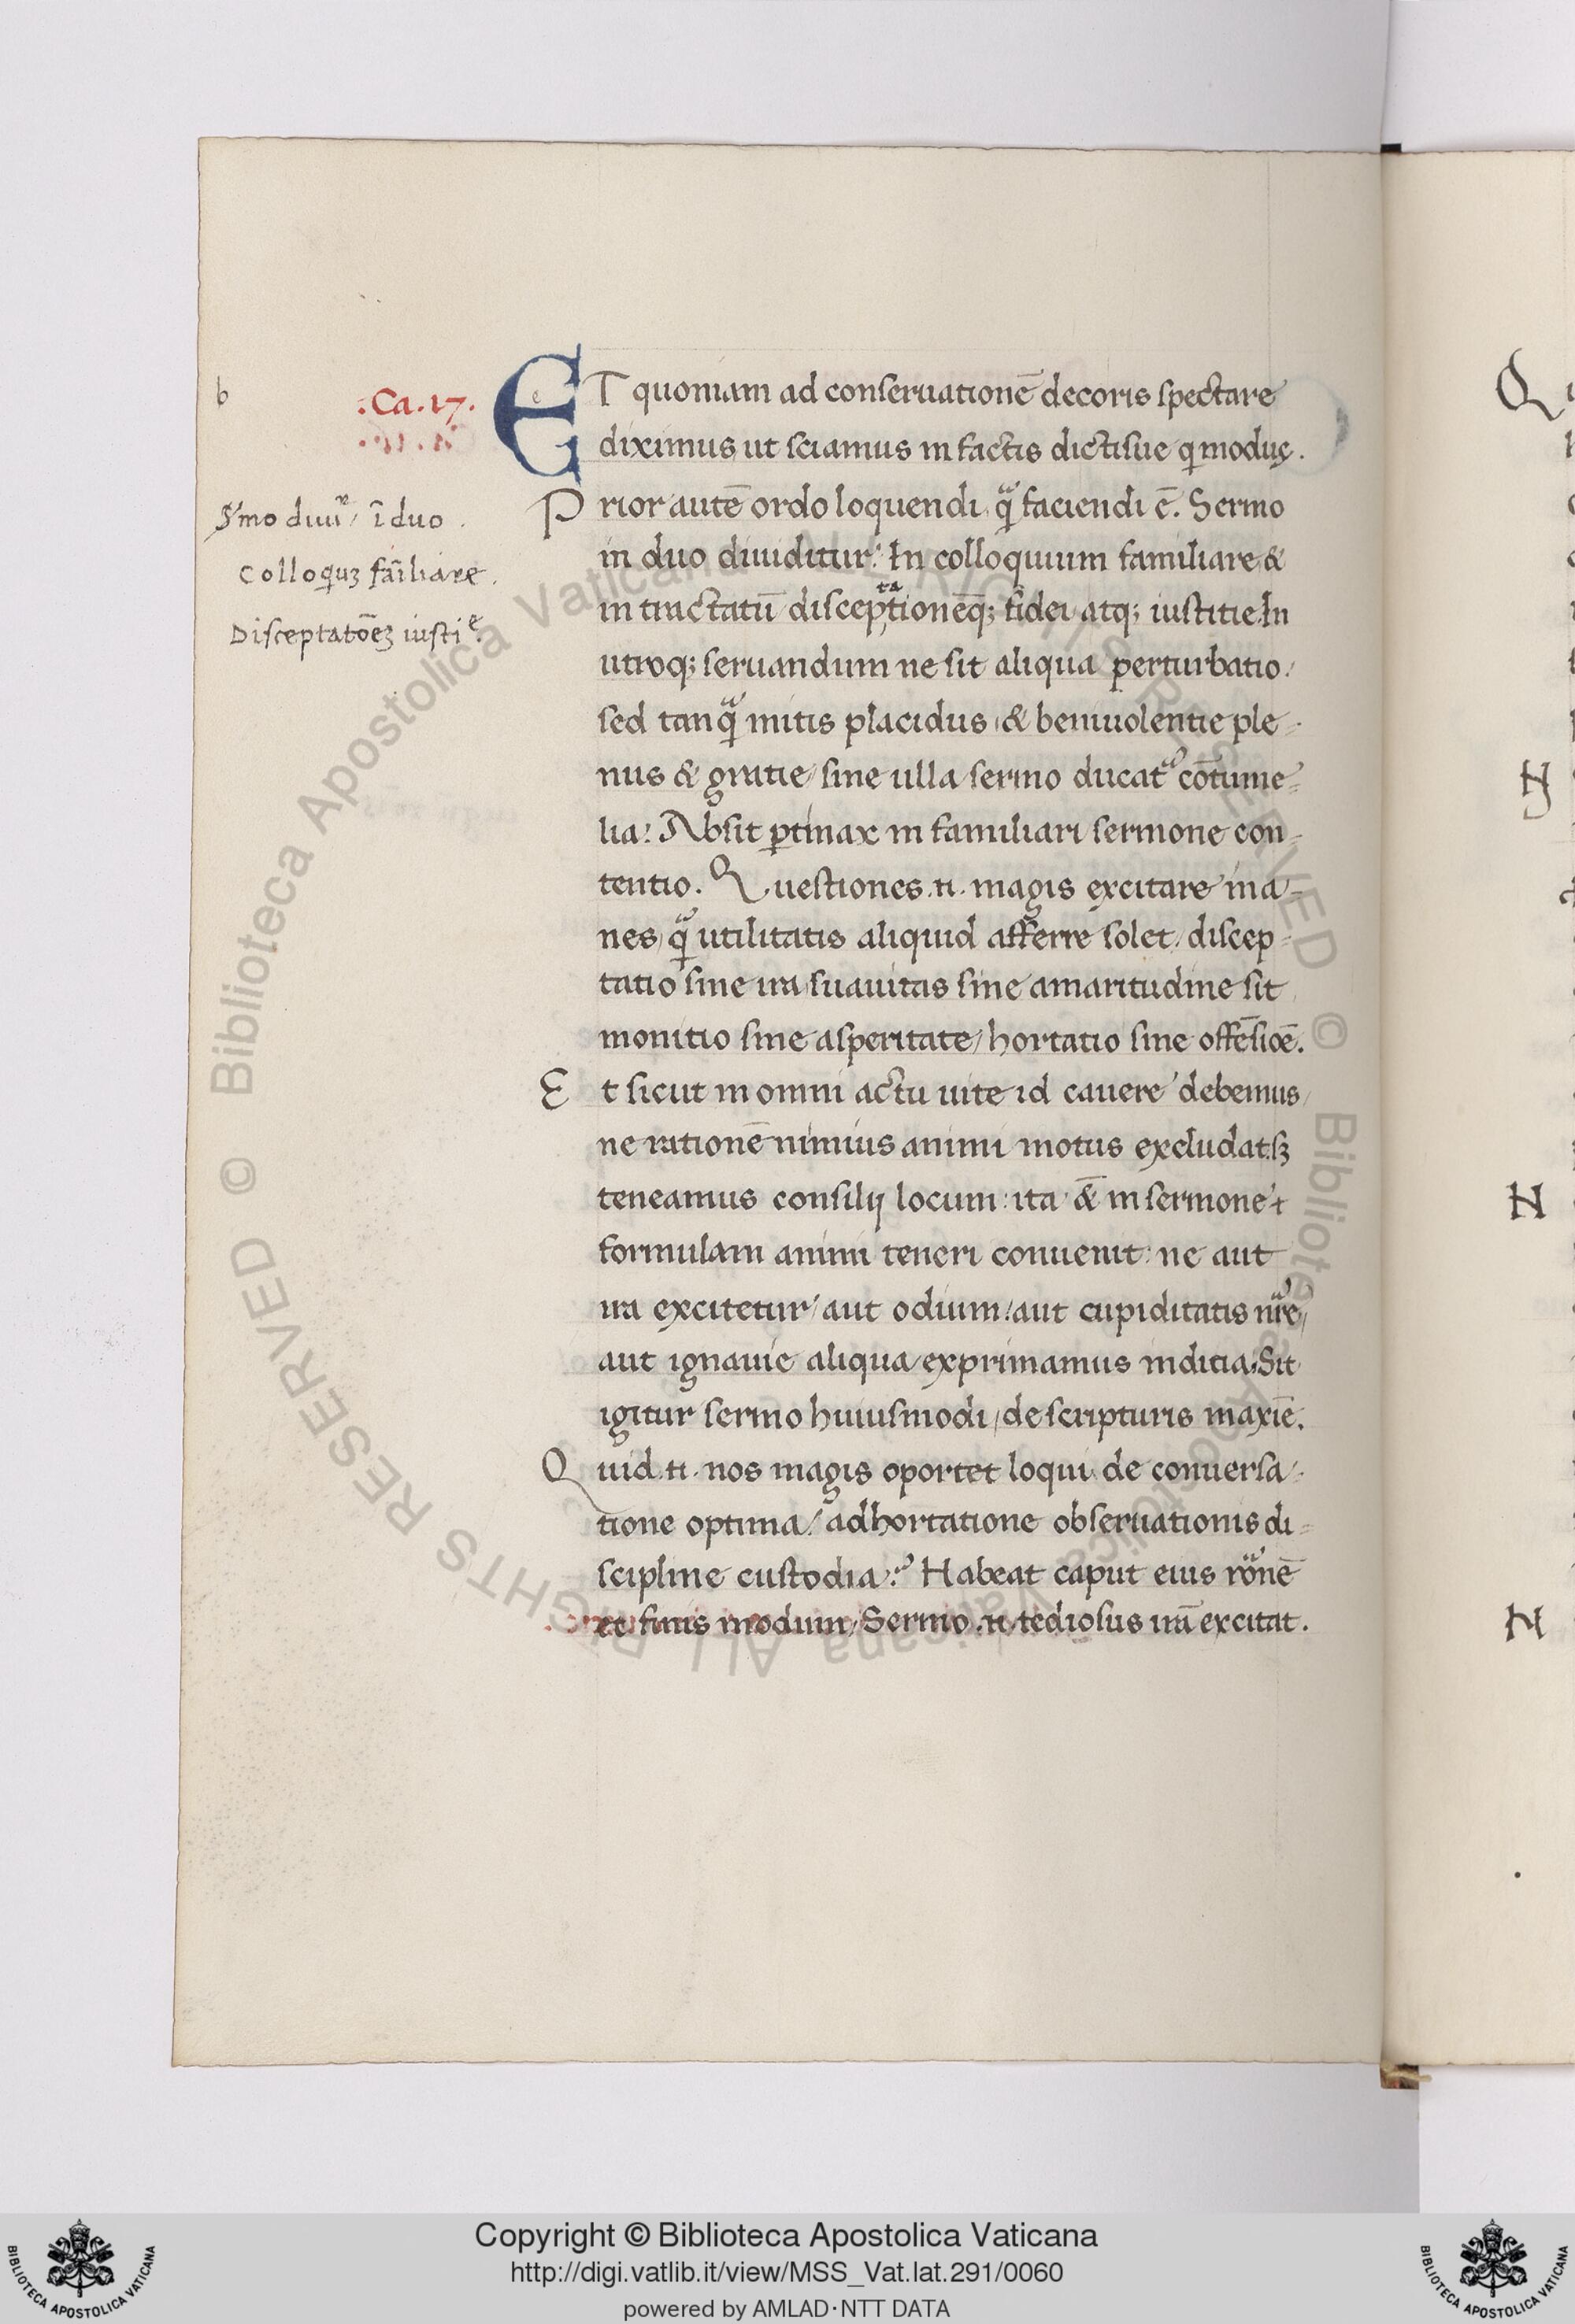 b
.Ca.17.
ET quoniam ad conseruationē decoris spectare
diximus, ut sciamus in factis dictisue q̄ modus.
Prior autē ordo loquendi, q̄ faciendi ē. Sermo
in duo diuiditur: In colloquium familiare &
in tractatū disceptationēq; fidei atq; iustitie. In
utroq; seruandum ne sit aliqua perturbatio/
sed tanq̄ mitis placidus, & beniuolentie ple-
nus & gratie/ sine ulla sermo ducat᷑ cōtume-
lia: Absit ꝑtinax in familiari sermone con-
tentio. Questiones .n. magis excitare ina-
nes, q̄ utilitatis aliquid afferre solet, discep-
tatio sine ira, suauitas sine amaritudine sit
monitio sine asperitate/ hortatio sine offēsiōe.
Et sicut in omni actu uite id cauere debemus/
ne rationē nimius animi motus excludat: sꝫ
teneamus consilij locum: ita & in sermone
formulam animi teneri conuenit: ne aut
ira excitetur/ aut odium/ aut cupiditatis nr̄e/
aut ignauie aliqua exprimamus inditia. Sit
igitur sermo huiusmodi/ de scripturis maxīe.
Quid .n. nos magis oportet loqui, de conuersa-
tione optima/ adhortatione obseruationis di-
scipline custodia? Habeat caput eius rōnē
et finis modum/ Sermo .n. tediosus irā excitat.
Smo diuit᷑/ ī duo.
Colloquiꝫ fāiliare.
Disceptatōēꝫ iustiᵉ.
Q
N
N
N
Copyright © Biblioteca Apostolica Vaticana
http://digi.vatlib.it/view/MSS_Vat.lat.291/0060
powered by AMLAD·NTT DATA
BIBLIOTECA APOSTOLICA VATICANA
BIBLIOTECA APOSTOLICA VATICANA
© Biblioteca Apostolica Vaticana ALL RIGHTS RESERVED © Biblioteca Apostolica Vaticana ALL RIGHTS RESERVED